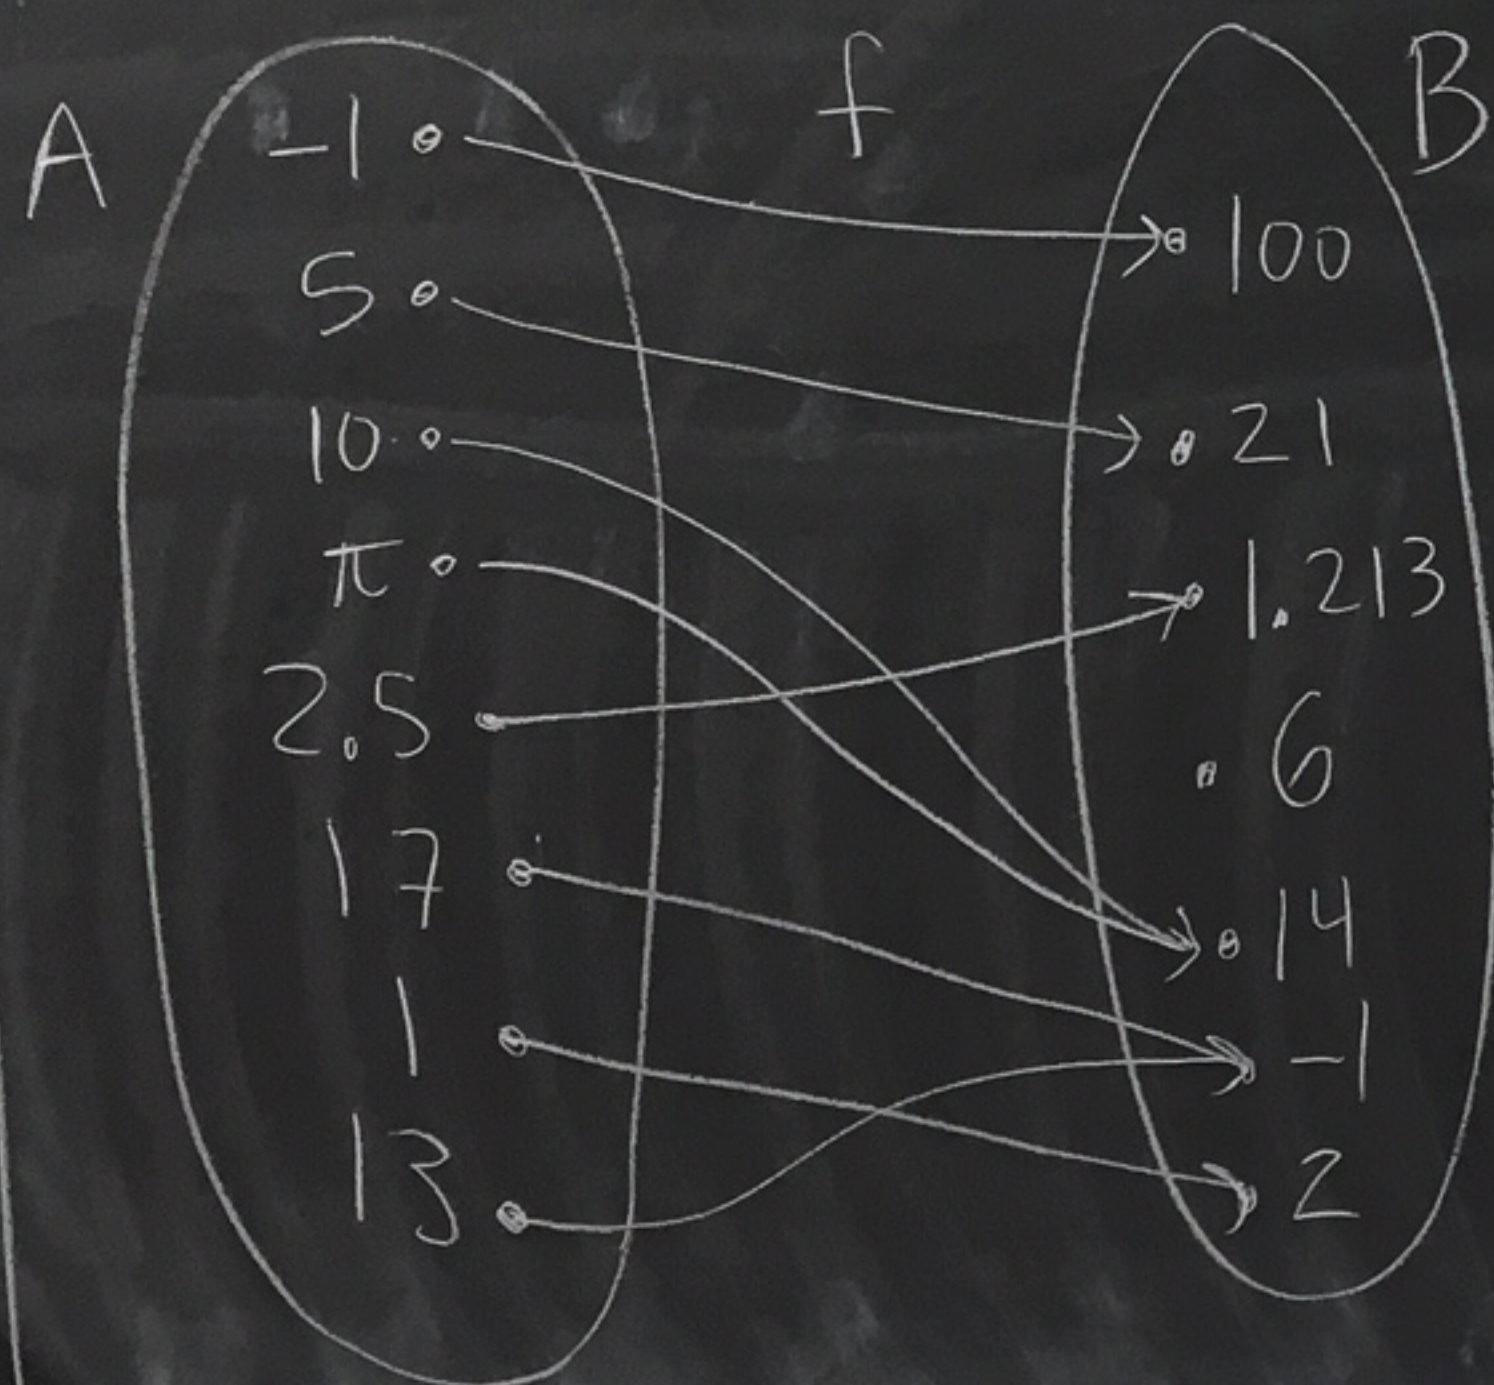 A f B
-1
5
10
π
2.5
17
1
13
100
21
1.213
6
14
-1
2